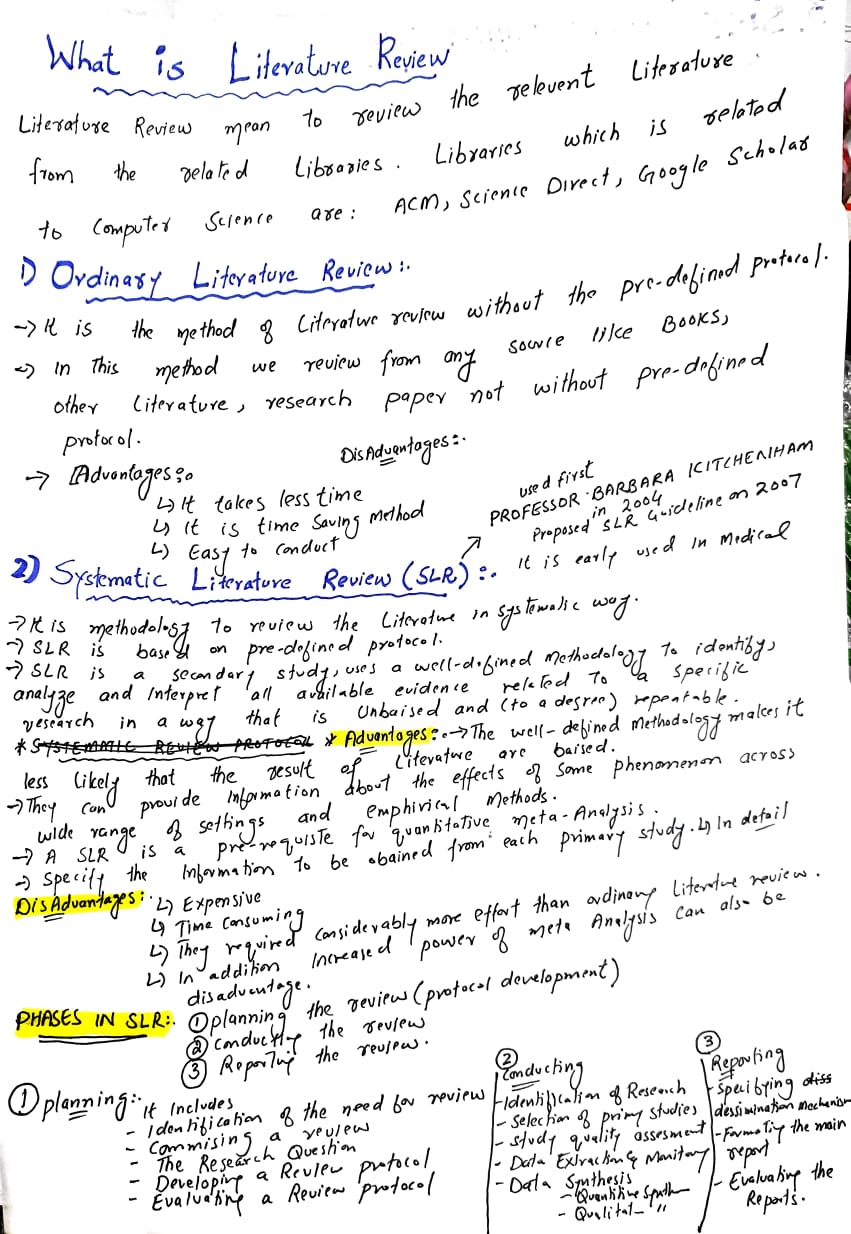 What is Literature Review
Literature Review mean to review the relevent Literature
from the related Libraries. Libraries which is related
to Computer Science are: ACM, Science Direct, Google Scholar
1) Ordinary Literature Review:.
→ It is the method of Literature review without the pre-defined protocol.
→ In This method we review from any source like Books,
other Literature, research paper not without pre-defined
protocol.
→ Advantages:
↳ It takes less time
↳ It is time Saving Method
↳ Easy to conduct
DisAdvantages:.
used first
PROFESSOR BARBARA KITCHENHAM
in 2004
Proposed SLR Guideline on 2007
It is early used in Medical
2) Systematic Literature Review (SLR):.
→ It is methodology to review the Literature in systematic way.
→ SLR is based on pre-defined protocol.
→ SLR is a secondary study, uses a well-defined Methodology To identify,
analyze and Interpret all available evidence related To a specific
research in a way that is Unbaised and (to a degree) repeatable.
* SYSTEMATIC REVIEW PROTOCOL * Advantages: → The well-defined Methodology makes it
less likely that the result of Literature are baised.
→ They can provide Information about the effects of some phenomenon across
wide range of settings and emphirical Methods.
→ A SLR is a pre-requiste for quantitative meta-Analysis.
→ Specify the Information to be obained from each primary study. ↳ In detail
DisAdvantages: ↳ Expensive
↳ Time Consuming
↳ They required considerably more effort than ordinary Literature review.
↳ In addition Increased power of meta Analysis can also be
disadvantage.
PHASES IN SLR:. ① planning the review (protocol development)
② Conducting the review
③ Reporting the review.
① planning:. It Includes
- Identification of the need for review
- Commising a review
- The Research Question
- Developing a Review protocol
- Evaluating a Review protocol
②
Conducting
- Identification of Research
- Selection of primy studies
- study quality assesment
- Data Extraction & Monitory
- Data Synthesis
- Quantitive
- Qualitat- "
③
Reporting
- Specifying diss
dessimination mechanism
- Formating the main
report
- Evaluating the
Reports.